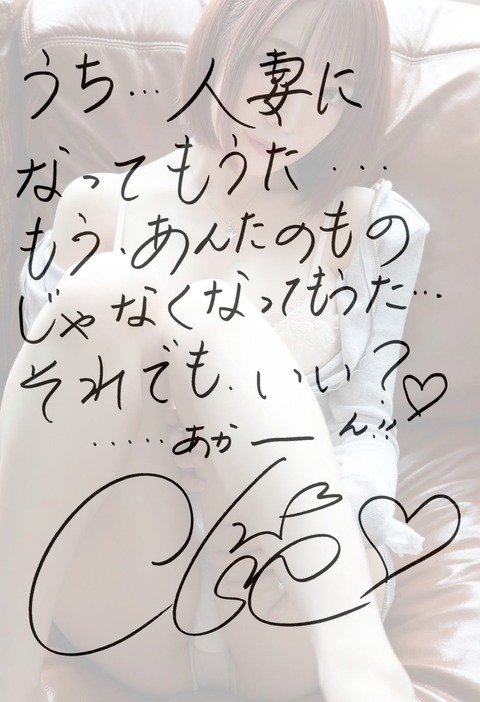 うち…人妻に
なってもうた…
もう、あんたのもの
じゃなくなってもうた…
それでも、いい?♡
……あかーん!!